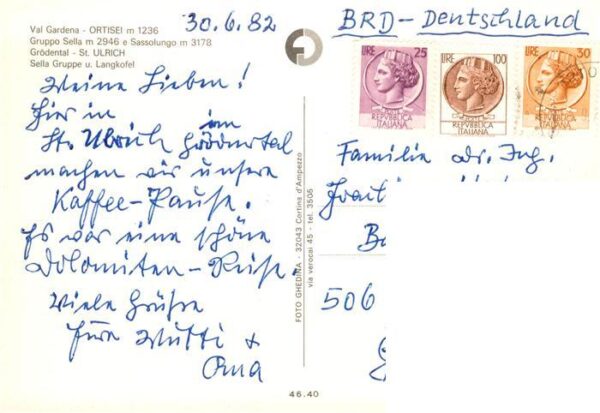 Val Gardena - ORTISEI m 1236
Gruppo Sella m 2946 e Sassolungo m 3178
Grödental - St. ULRICH
Sella Gruppe u. Langkofel
30.6.82
Meine Lieben!
Hier in
St. Ulrich im Grödnertal
machen wir unsere
Kaffee-Pause.
Es war eine schöne
Dolomiten-Reise.
Viele Grüße
Eure Mutti +
Oma
FOTO GHEDINA - 32043 Cortina d'Ampezzo
via verocai 45 - tel. 3505
46.40
BRD-Deutschland
LIRE 25
LIRE 100
REPVBBLICA
ITALIANA
LIRE 30
REPVBBLICA
ITALIANA
REPVBBLICA
ITALIANA
Familie Dr. Ing.
506